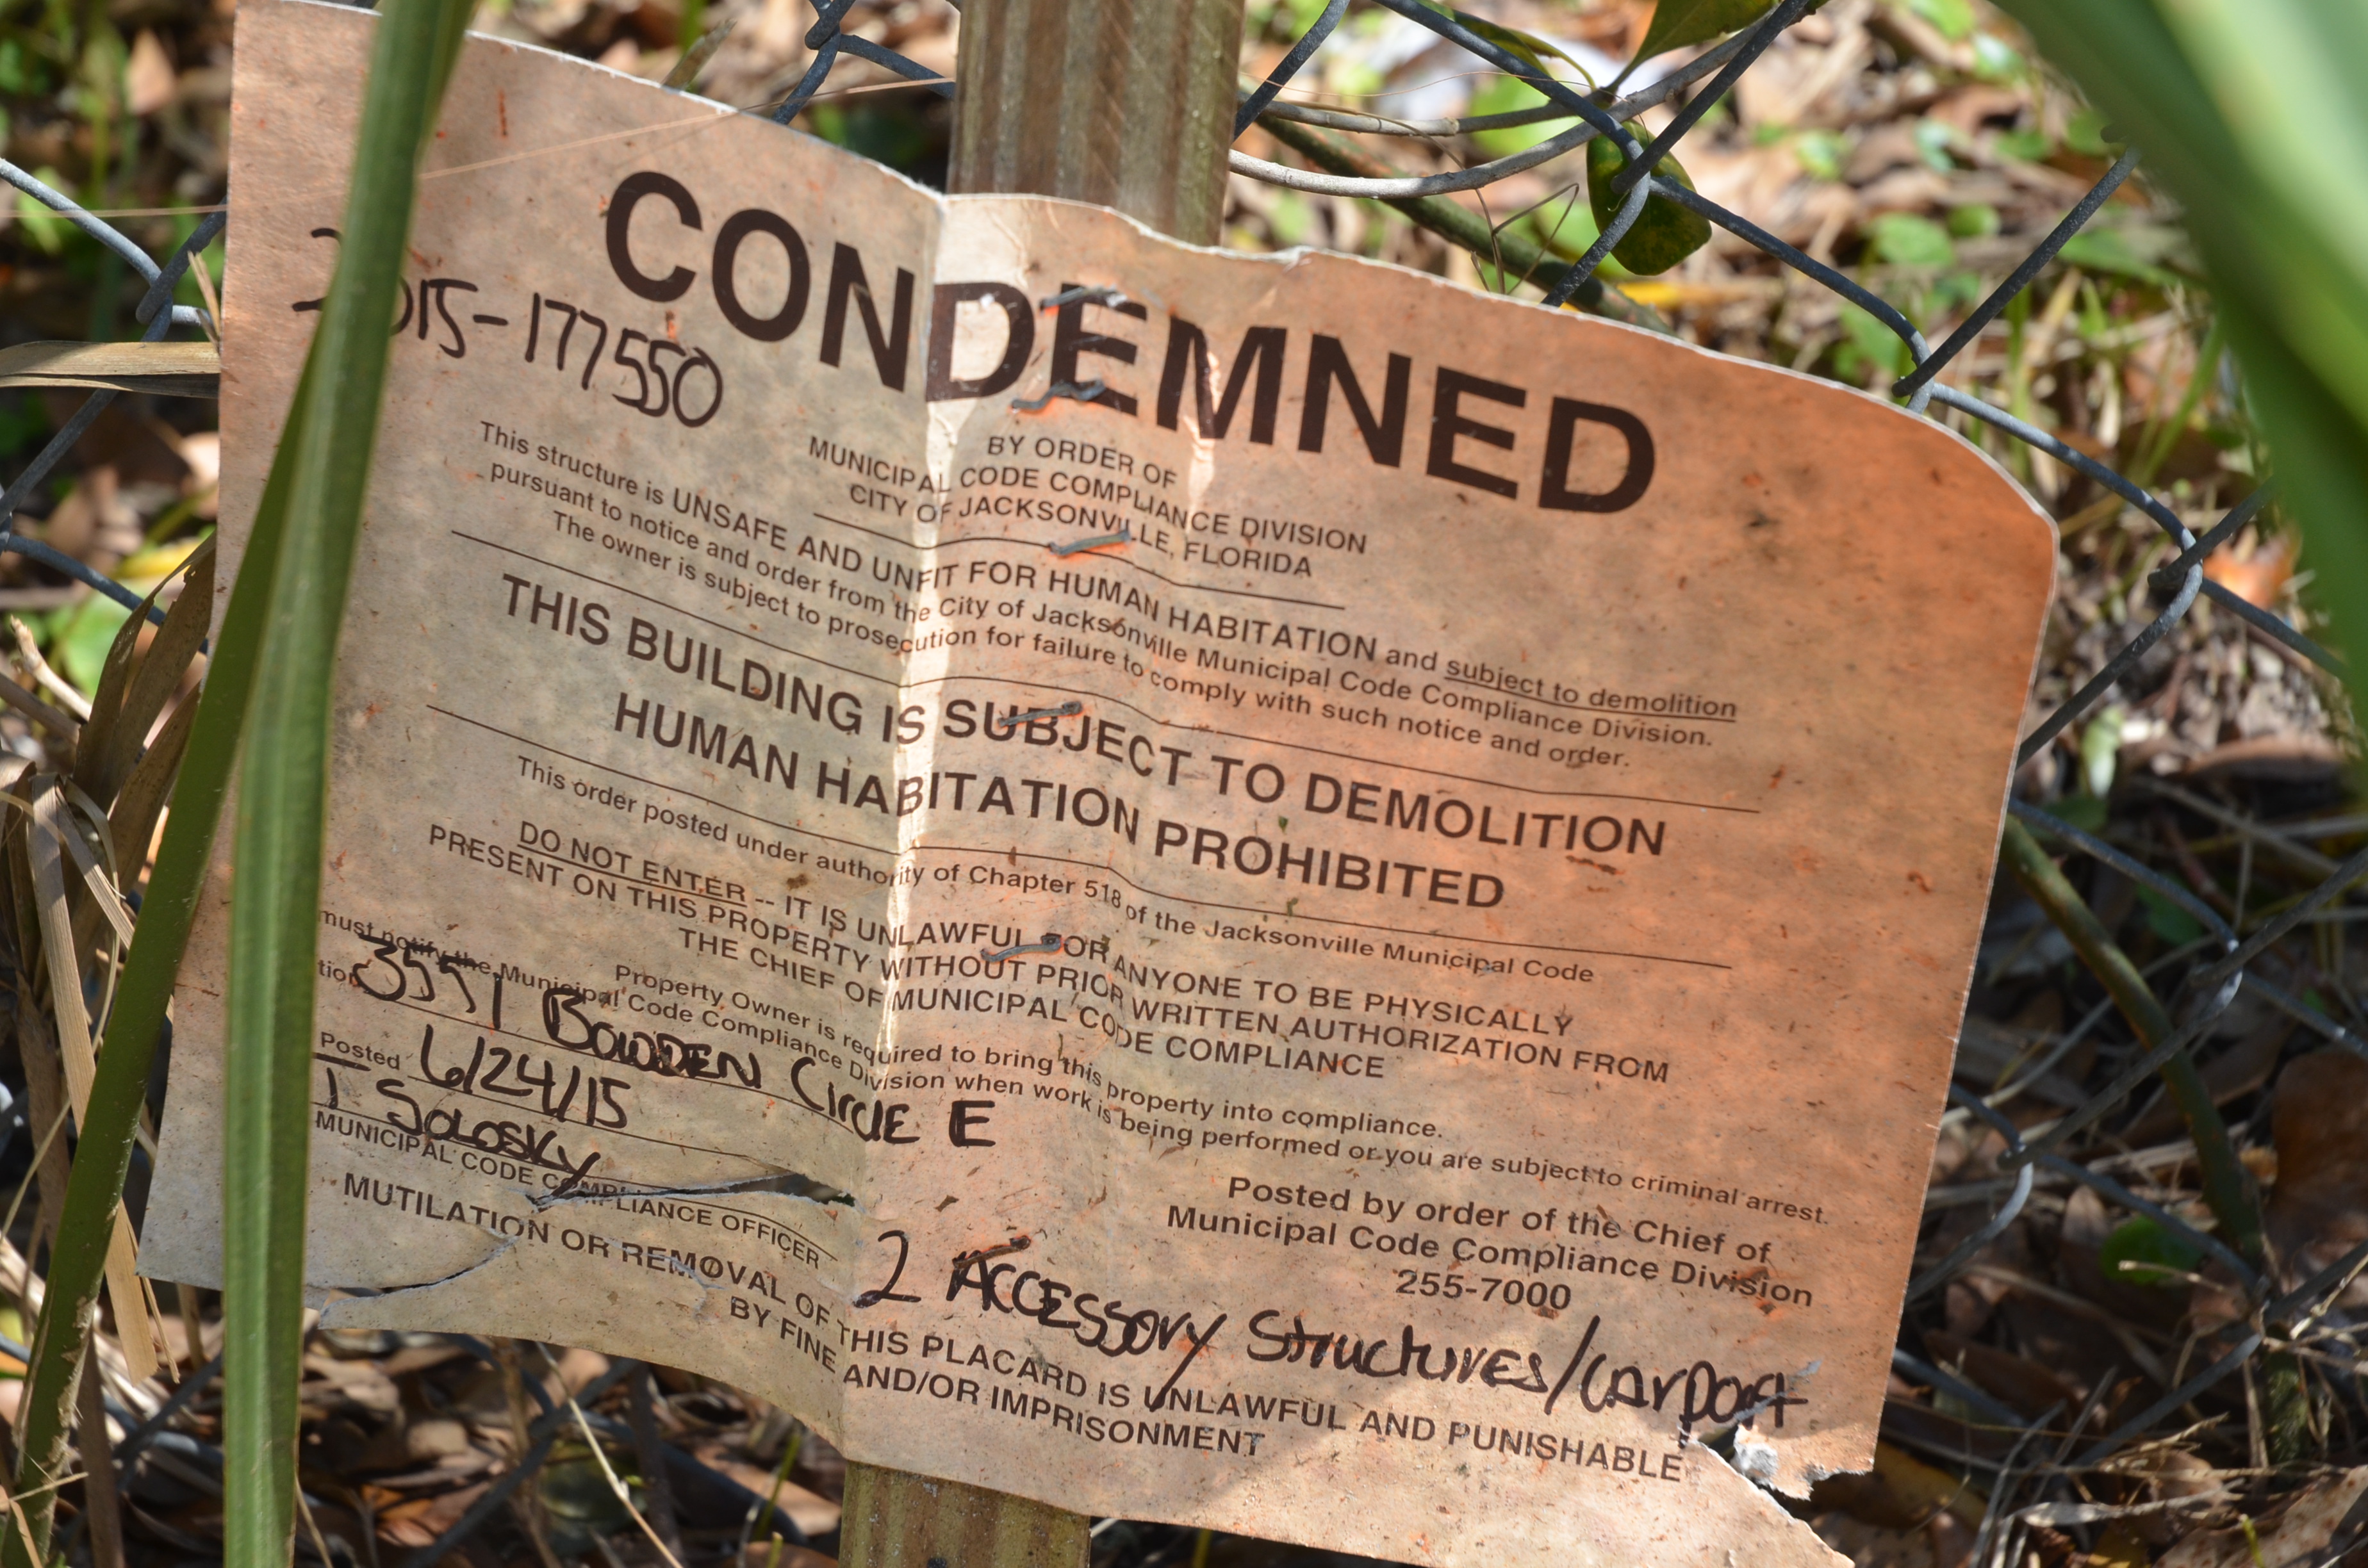 CONDEMNED
2015-177550
BY ORDER OF
MUNICIPAL CODE COMPLIANCE DIVISION
CITY OF JACKSONVILLE, FLORIDA
This structure is UNSAFE AND UNFIT FOR HUMAN HABITATION and subject to demolition
pursuant to notice and order from the City of Jacksonville Municipal Code Compliance Division.
The owner is subject to prosecution for failure to comply with such notice and order.
THIS BUILDING IS SUBJECT TO DEMOLITION
HUMAN HABITATION PROHIBITED
This order posted under authority of Chapter 518 of the Jacksonville Municipal Code
DO NOT ENTER -- IT IS UNLAWFUL FOR ANYONE TO BE PHYSICALLY
PRESENT ON THIS PROPERTY WITHOUT PRIOR WRITTEN AUTHORIZATION FROM
THE CHIEF OF MUNICIPAL CODE COMPLIANCE
Property Owner is required to bring this property into compliance.
must notify the Municipal Code Compliance Division when work is being performed or you are subject to criminal arrest.
tion 3551 BOWDEN CircLE E
Posted 6/24/15
T SOLOSKY
MUNICIPAL CODE COMPLIANCE OFFICER
Posted by order of the Chief of
Municipal Code Compliance Division
255-7000
2 ACCESSORY StructurES/CarPort
MUTILATION OR REMOVAL OF THIS PLACARD IS UNLAWFUL AND PUNISHABLE
BY FINE AND/OR IMPRISONMENT